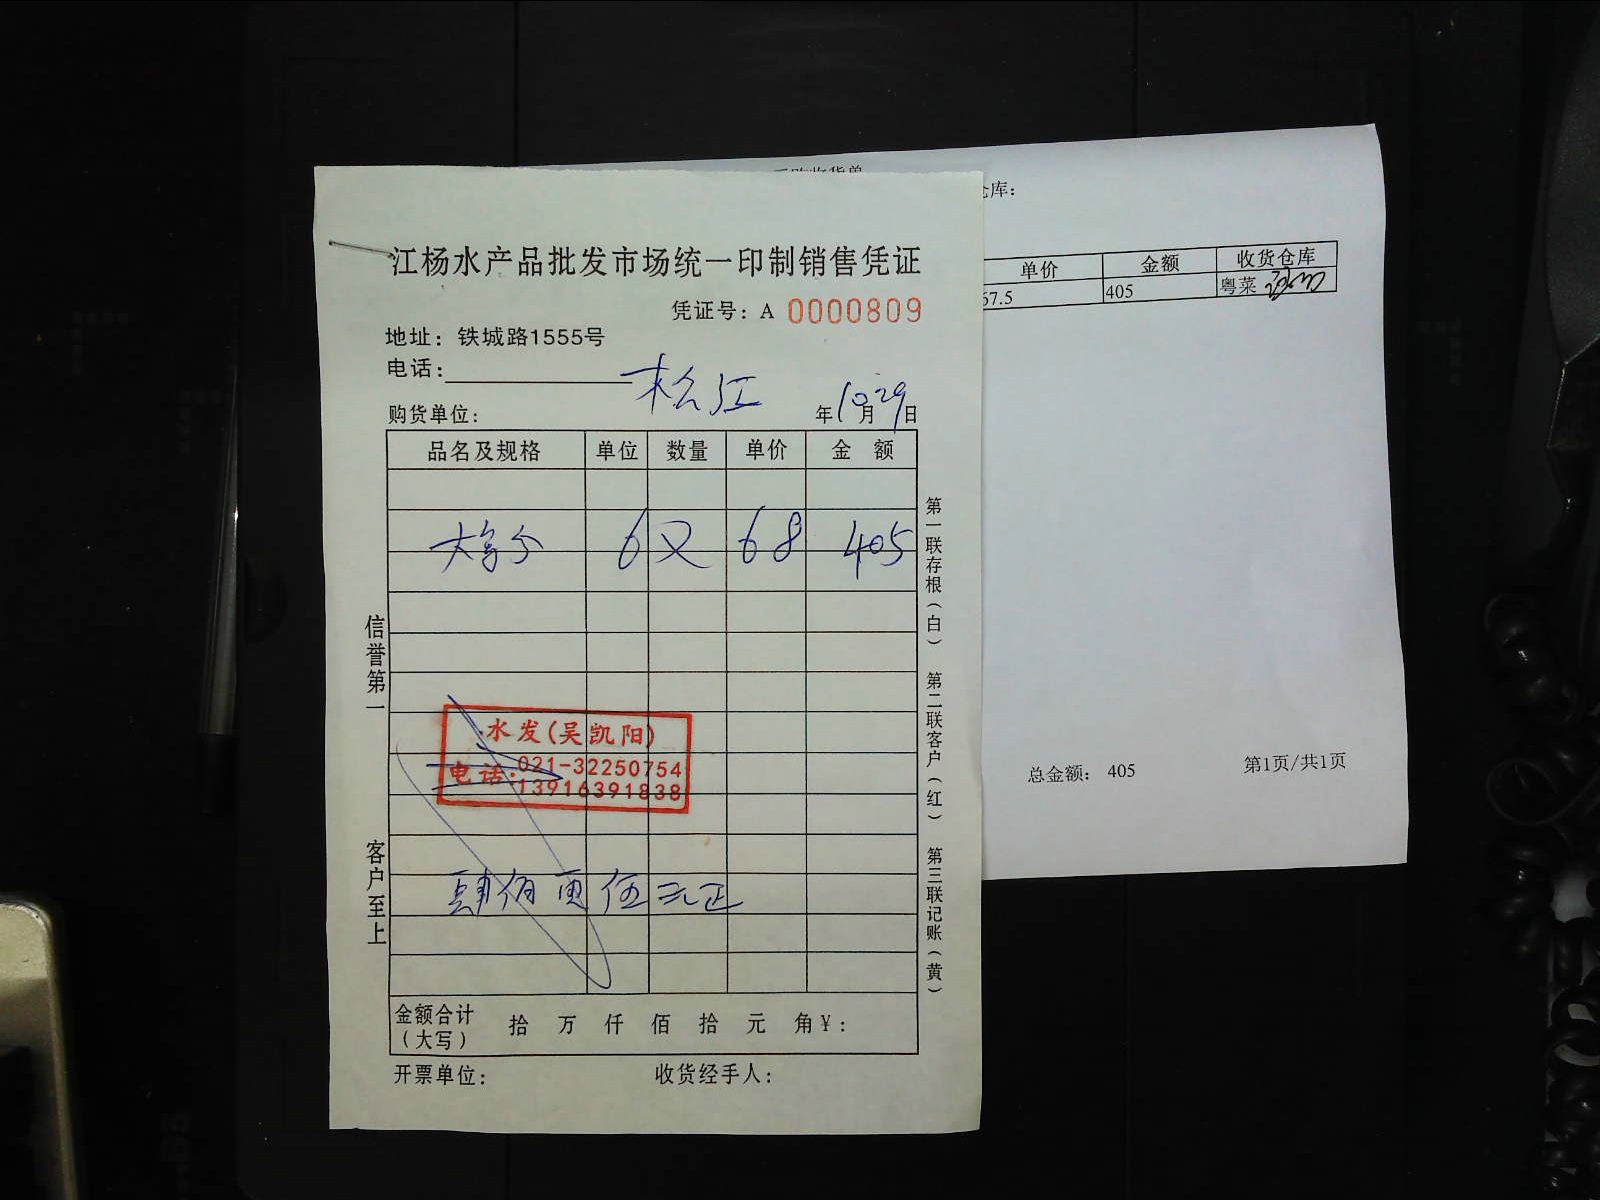 江杨水产品批发市场统一印制销售凭证
凭证号：A 0000809
地址：铁城路1555号
电话：
松江
购货单位： 年10月29日
品名及规格 单位 数量 单价 金额
6 又 68 405
信誉第一
客户至上
水发(吴凯阳)
电话.021-32250754
13916391838
肆佰零伍元正
金额合计（大写） 拾 万 仟 佰 拾 元 角￥：
开票单位： 收货经手人：
第一联存根（白） 第二联客户（红） 第三联记账（黄）
收货单
仓库：
单价 金额 收货仓库
67.5 405 粤菜
总金额： 405 第1页/共1页